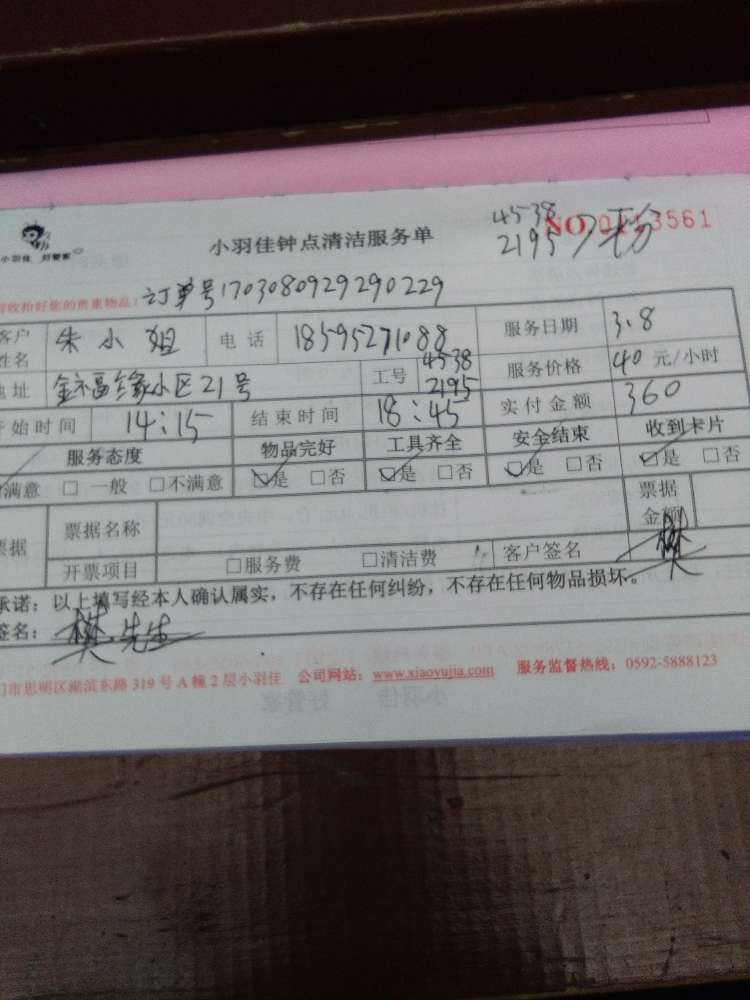 小羽佳 好管家
小羽佳钟点清洁服务单
4538
2195
NO 3561
收拾好您的贵重物品！ 订单号1703080929290229
客户姓名 朱小姐 电话 18595271088 服务日期 3.8
地址 金福缘小区21号 工号 4538 2195 服务价格 40 元/小时
开始时间 14:15 结束时间 18:45 实付金额 360
服务态度 物品完好 工具齐全 安全结束 收到卡片
满意 □ 一般 □不满意 ☑是 □否 ☑是 □否 ☑是 □否 ☑是 □否
票据 票据名称 票据金额
开票项目 □服务费 □清洁费 客户签名 樊
承诺：以上填写经本人确认属实，不存在任何纠纷，不存在任何物品损坏。
签名：樊先生
门市思明区湖滨东路 319 号 A 幢 2 层小羽佳 公司网站：www.xiaoyujia.com 服务监督热线：0592-5888123